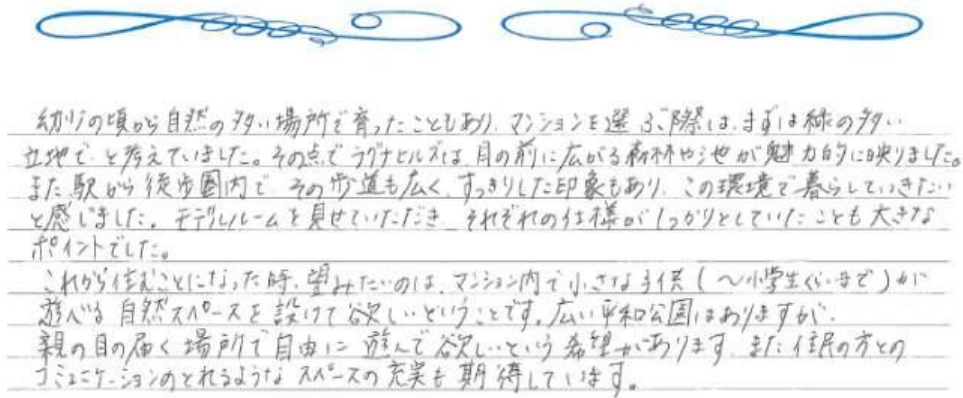 幼少の頃から自然の多い場所で育ったこともあり、マンションを選ぶ際は、まずは緑の多い
立地で、と考えていました。その点でラグナヒルズは、目の前に広がる森林や池が魅力的に映りました。
また駅から徒歩圏内で、その歩道も広く、すっきりした印象もあり、この環境で暮らしていきたい
と感じました。モデルルームを見せていただき、それぞれの仕様がしっかりとしていたことも大きな
ポイントでした。
これから住むことになった時、望みたいのは、マンション内で小さな子供(〜小学生くらいまで)が
遊べる自然スペースを設けて欲しいということです。広い平和公園はありますが、
親の目の届く場所で自由に遊んで欲しいという希望があります。また住民の方との
コミュニケーションのとれるようなスペースの充実も期待しています。